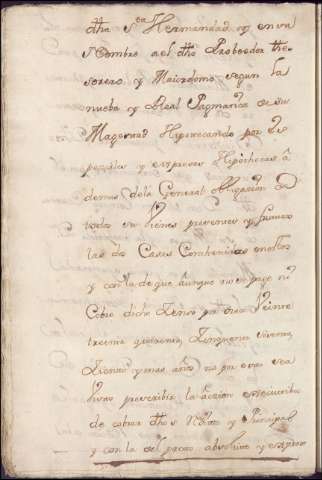 dha Sta Hermandad, y en su
Nombre a el dho Probeedor The-
sorero, y Maiordomo, segun la
nueba y Real Pagmatica de su
Magestad Hipotecando por es-
peciales y expresas Hipothecas a
demas dela General obligacion de
todos sus Vienes presentes y futuros
las de Casas Contenidas en ellos
y con la de que aunque no se page ni
Cobre dicho Zenso por diez Veinte
treinta quarenta, Zinquenta, sesenta,
Zien y mas años no por eso sea
Visto prescribir la accion executiba
de cobrar dhos Reditos y Principal
y con la del pacto absoluto y expreso